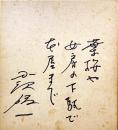 葉桜や
女房の下駄で
本屋まで